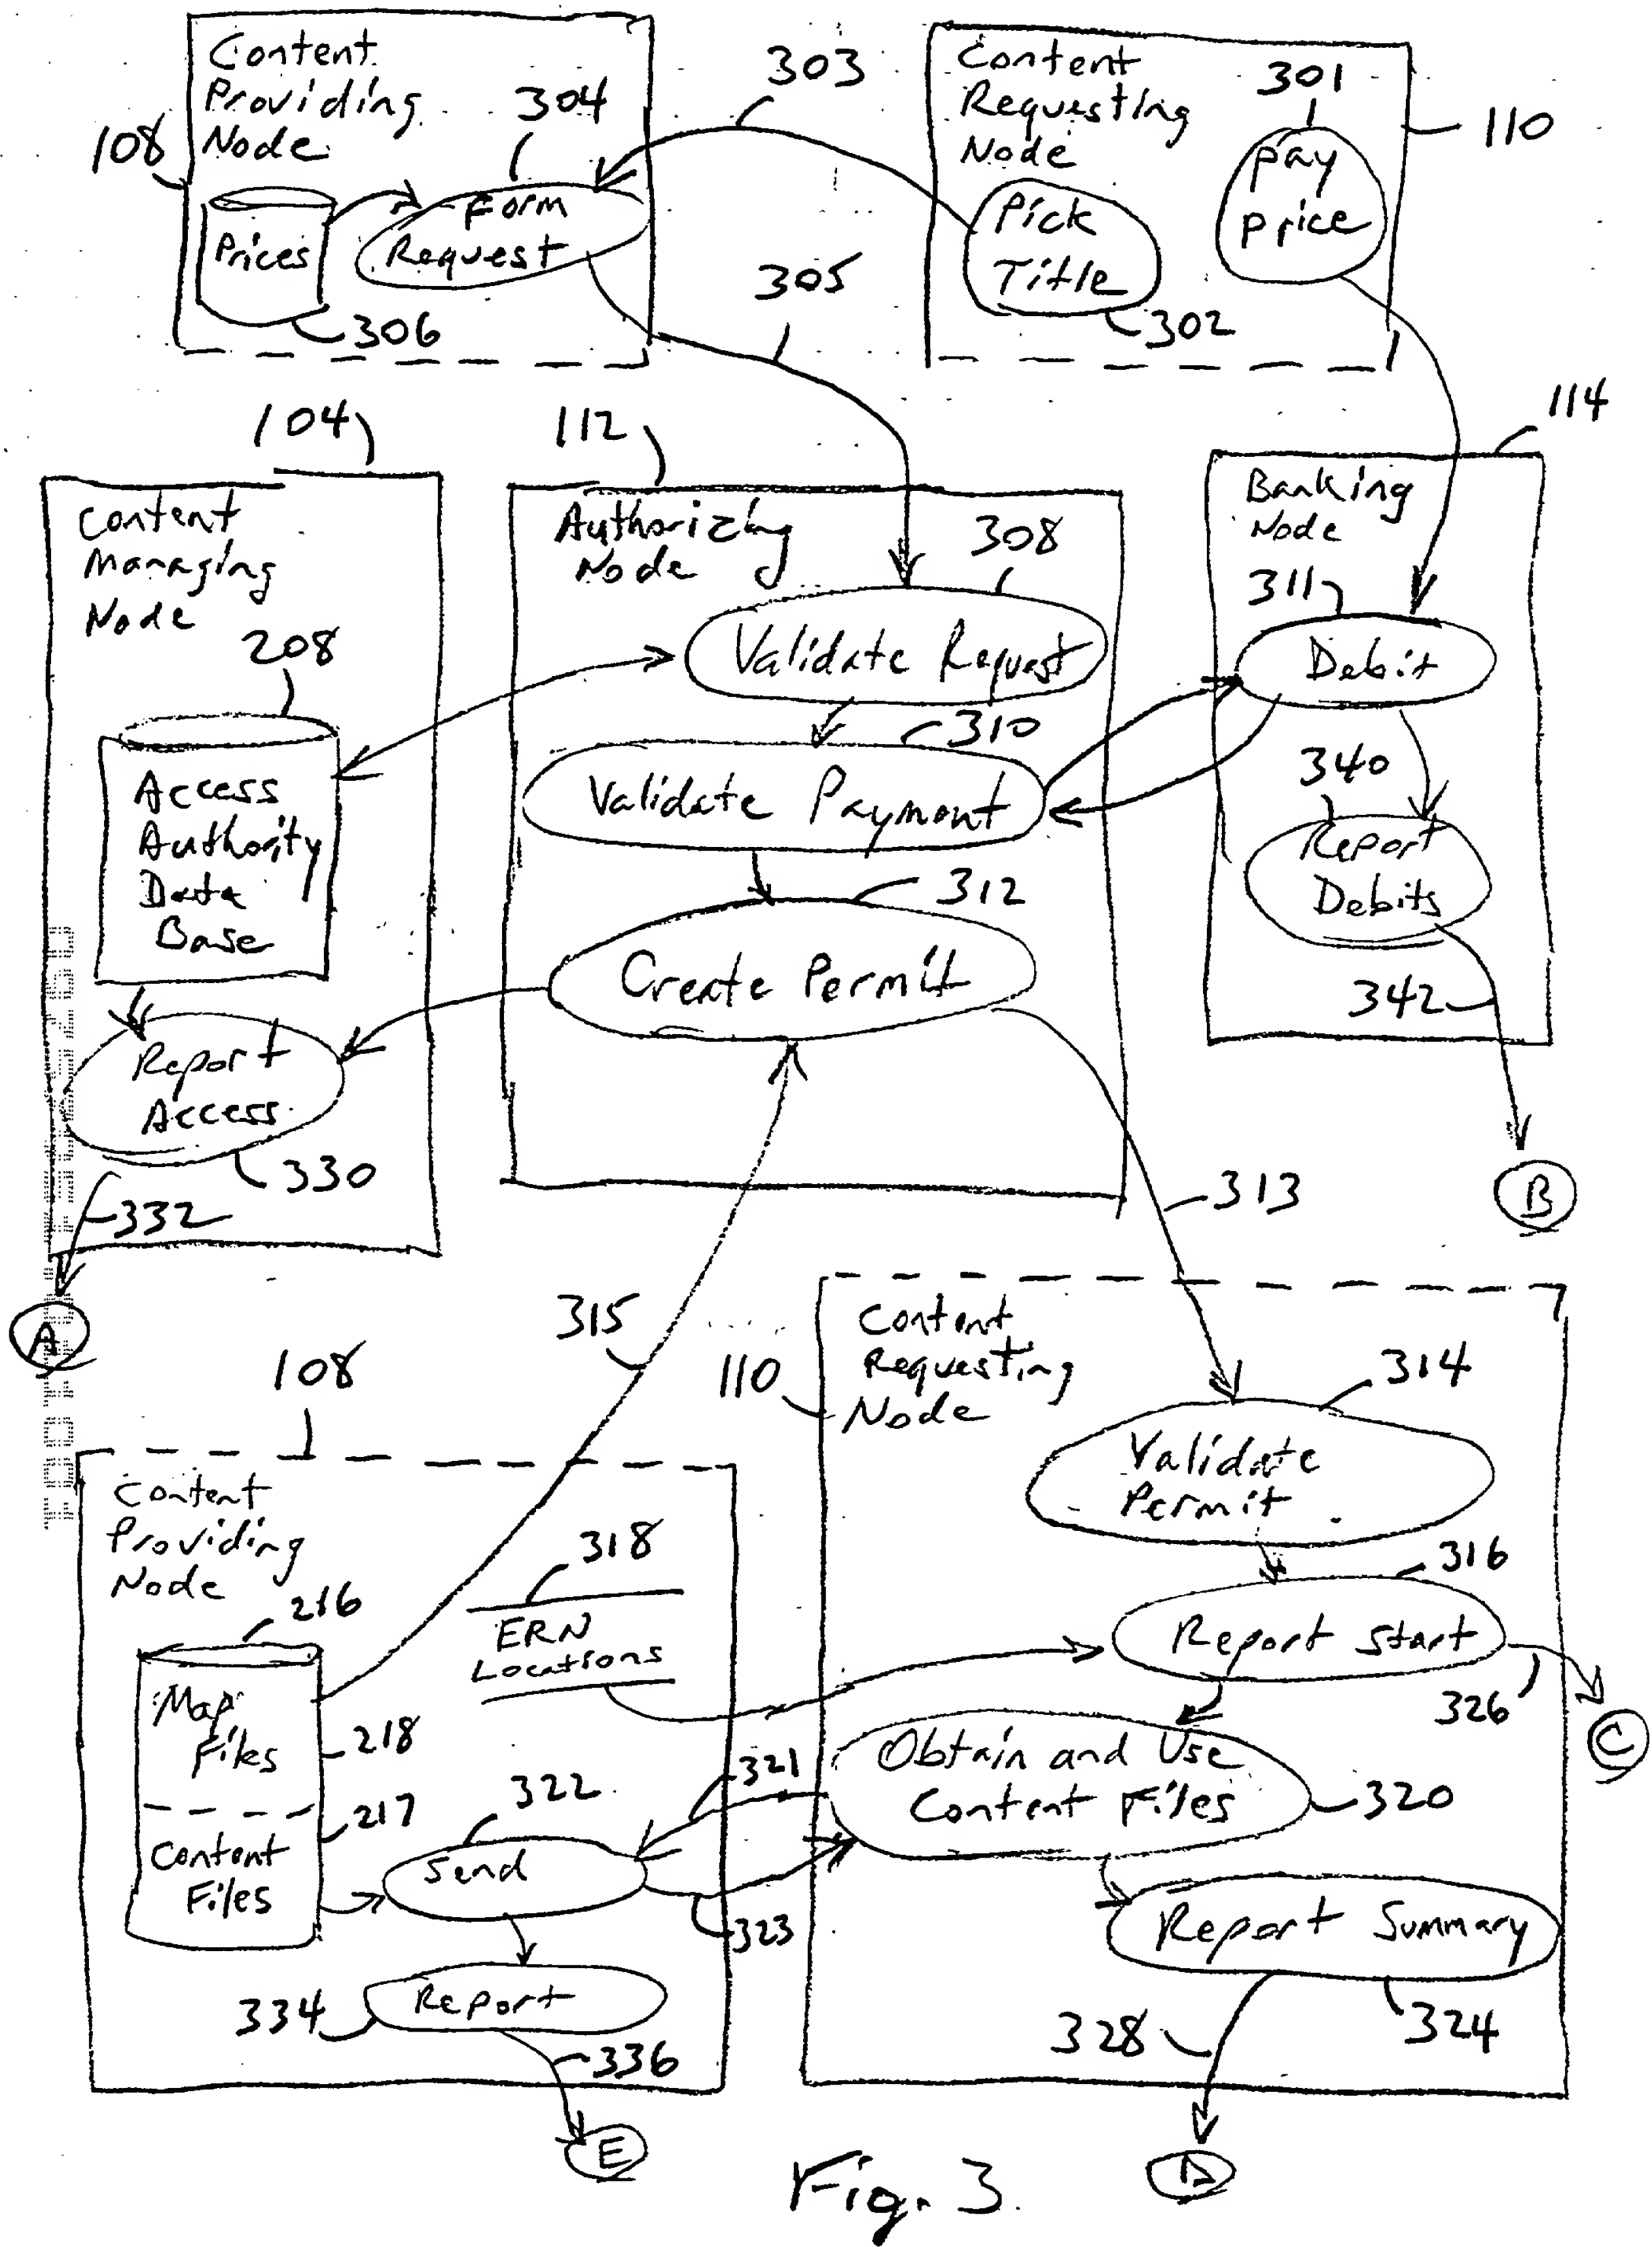 Content
Providing
Node
108
304
Prices
Form
Request
306
303
305
Content
Requesting
Node
301
pay
price
110
Pick
Title
302
104
Content
Managing
Node
208
Access
Authority
Data
Base
Report
Access
330
332
A
112
Authorizing
Node
308
Validate Request
310
Validate Payment
312
Create Permit
114
Banking
Node
311
Debit
340
Report
Debits
342
B
313
315
108
Content
Providing
Node
216
Map
Files
218
217
Content
Files
318
ERN
Locations
322
Send
321
323
334
Report
336
E
110
Content
Requesting
Node
314
Validate
Permit
316
Report Start
326
C
Obtain and Use
Content Files
320
Report Summary
324
328
D
Fig. 3